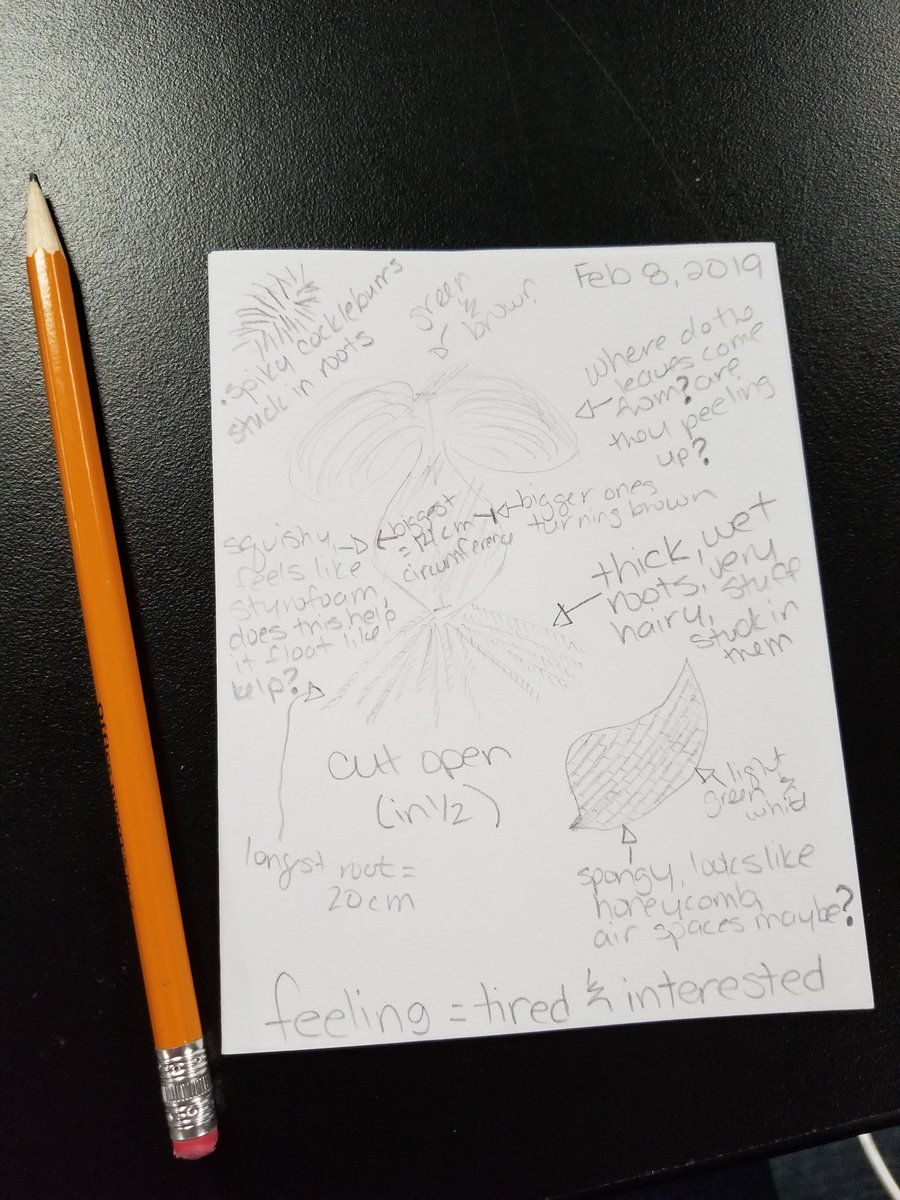 Feb 8, 2019
. spiky cockleburrs
stuck in roots
green
& brown
where do the
leaves come
from? are
they peeling
up?
squishy,
feels like
styrofoam,
does this help
it float like
kelp?
biggest
= 14cm
circumference
bigger ones
turning brown
thick, wet
roots, very
hairy, stuff
stuck in
them
cut open
(in 1/2)
longest root =
20cm
light
green &
spongy, looks like
honeycomb,
air spaces maybe?
feeling = tired & interested